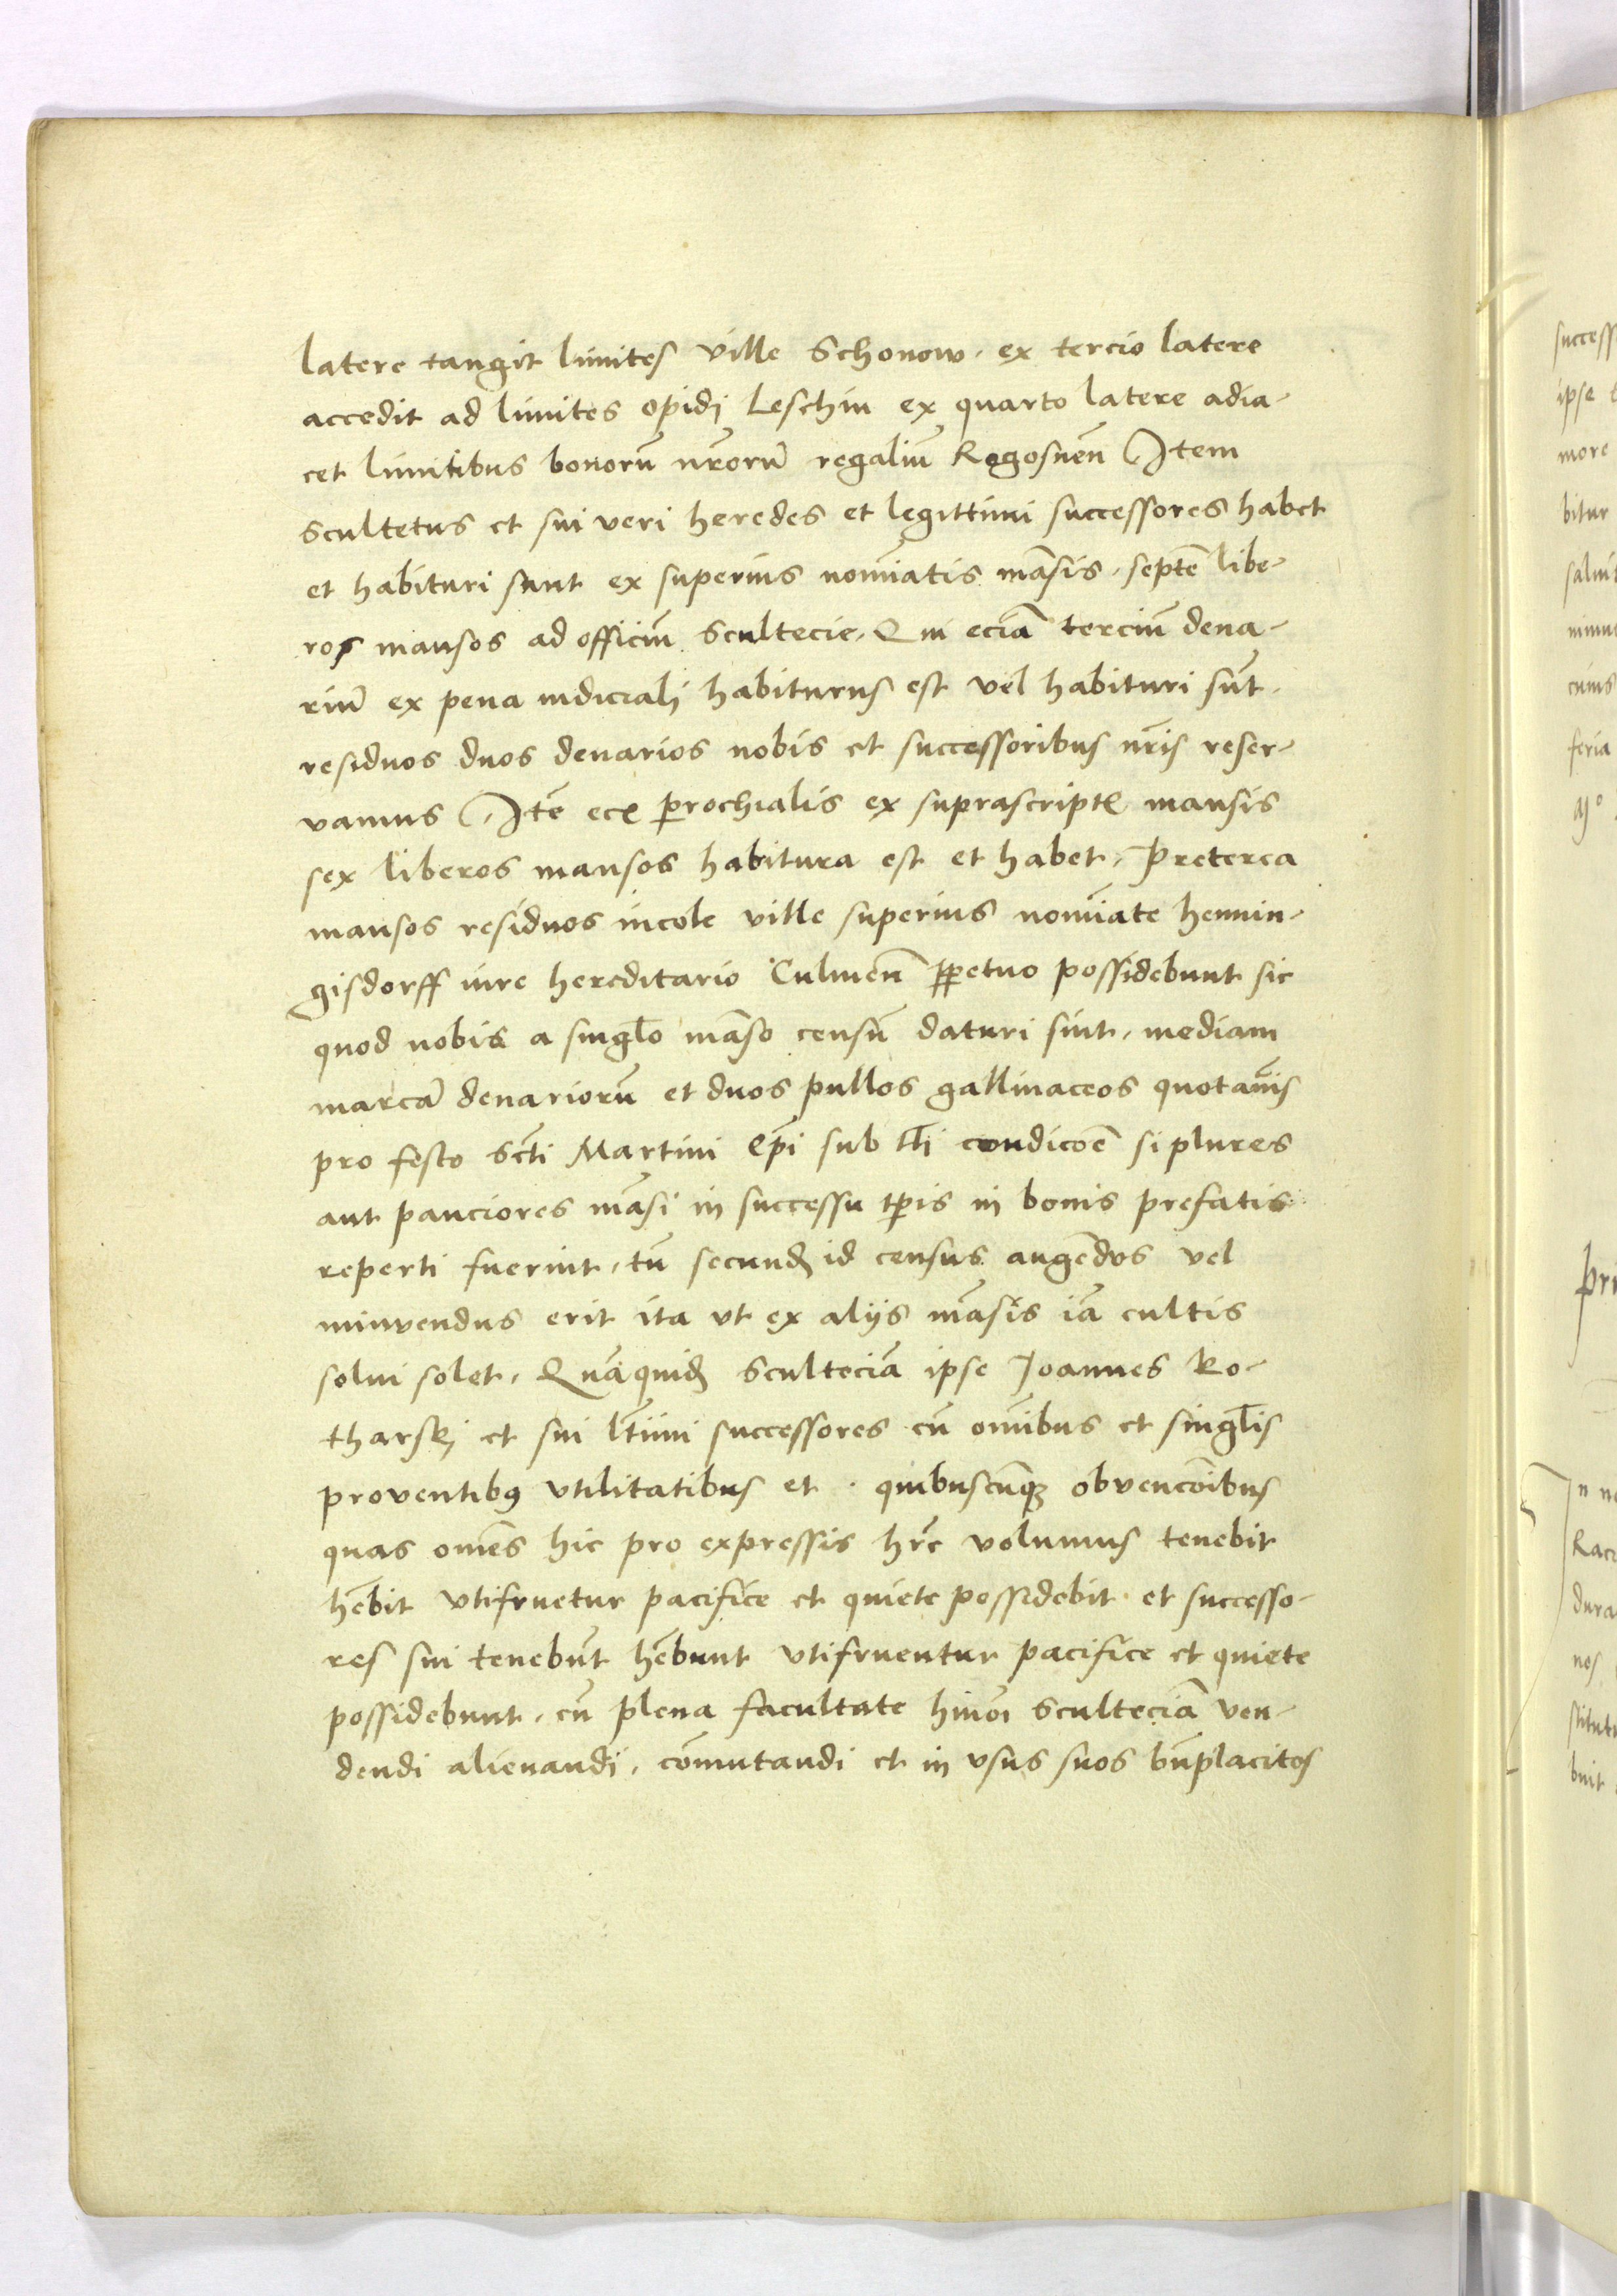 latere tangit limites ville Schonow, ex tercio latere
accedit ad limites opidj Leschin ex quarto latere adia-
cet limitibus bonorū nr̄orū regaliū Rogosneñ Item
scultetus et sui veri heredes et legittimi successores habet
et habituri sunt ex superius nomi͞atis mā͞sis, septē libe-
ros mansos ad officiū scultecie, Qui eciā terciū dena-
riū ex pena iudicialj habiturus est vel habituri sūt,
residuos duos denarios nobis et successoribus nr̄is reser-
vamus Itē eccl̄ia ꝑrochialis ex suprascriptꝭ mansis
sex liberos mansos habitura est et habet, Preterea
mansos residuos incole ville superius nomīate hennin-
gisdorff iure hereditario Culmeñ ꝑpetuo possidebunt sic
quod nobis a singl̄o māso censū daturi sint, mediam
marcā denariorū et duos pullos gallinaceos quotānis
pro festo Scti̅ Martini Ep̄i sub tl̄i condicōe si plures
aut pauciores māsi in successu tꝑis in bonis prefatis
reperti fuerint, tū secundꝫ id census augēdos vel
minuendus erit ita vt ex alijs māsis iā cultis
solui solet, Quāquidꝫ sculteciā ipse Joannes Ko-
tharskj et sui lt̄imi successores cū om̄ibus et singl̄is
proventibꝰ vtilitatibus et quibuscūqꝫ obvencōibus
quas om̄es hic pro expressis hr̄e volumus tenebit
hēbit vtifruetur pacifice et quiete possidebit et successo-
res sui tenebūt hēbunt vtifruentur pacifice et quiete
possidebunt, cū plena facultate hmōi sculteciā ven-
dendi alienandi, cōmutandi et in vsus suos bn̄placitos
successo
ipse
more
bitur
cuius
feria
In no
dura
nos
buit